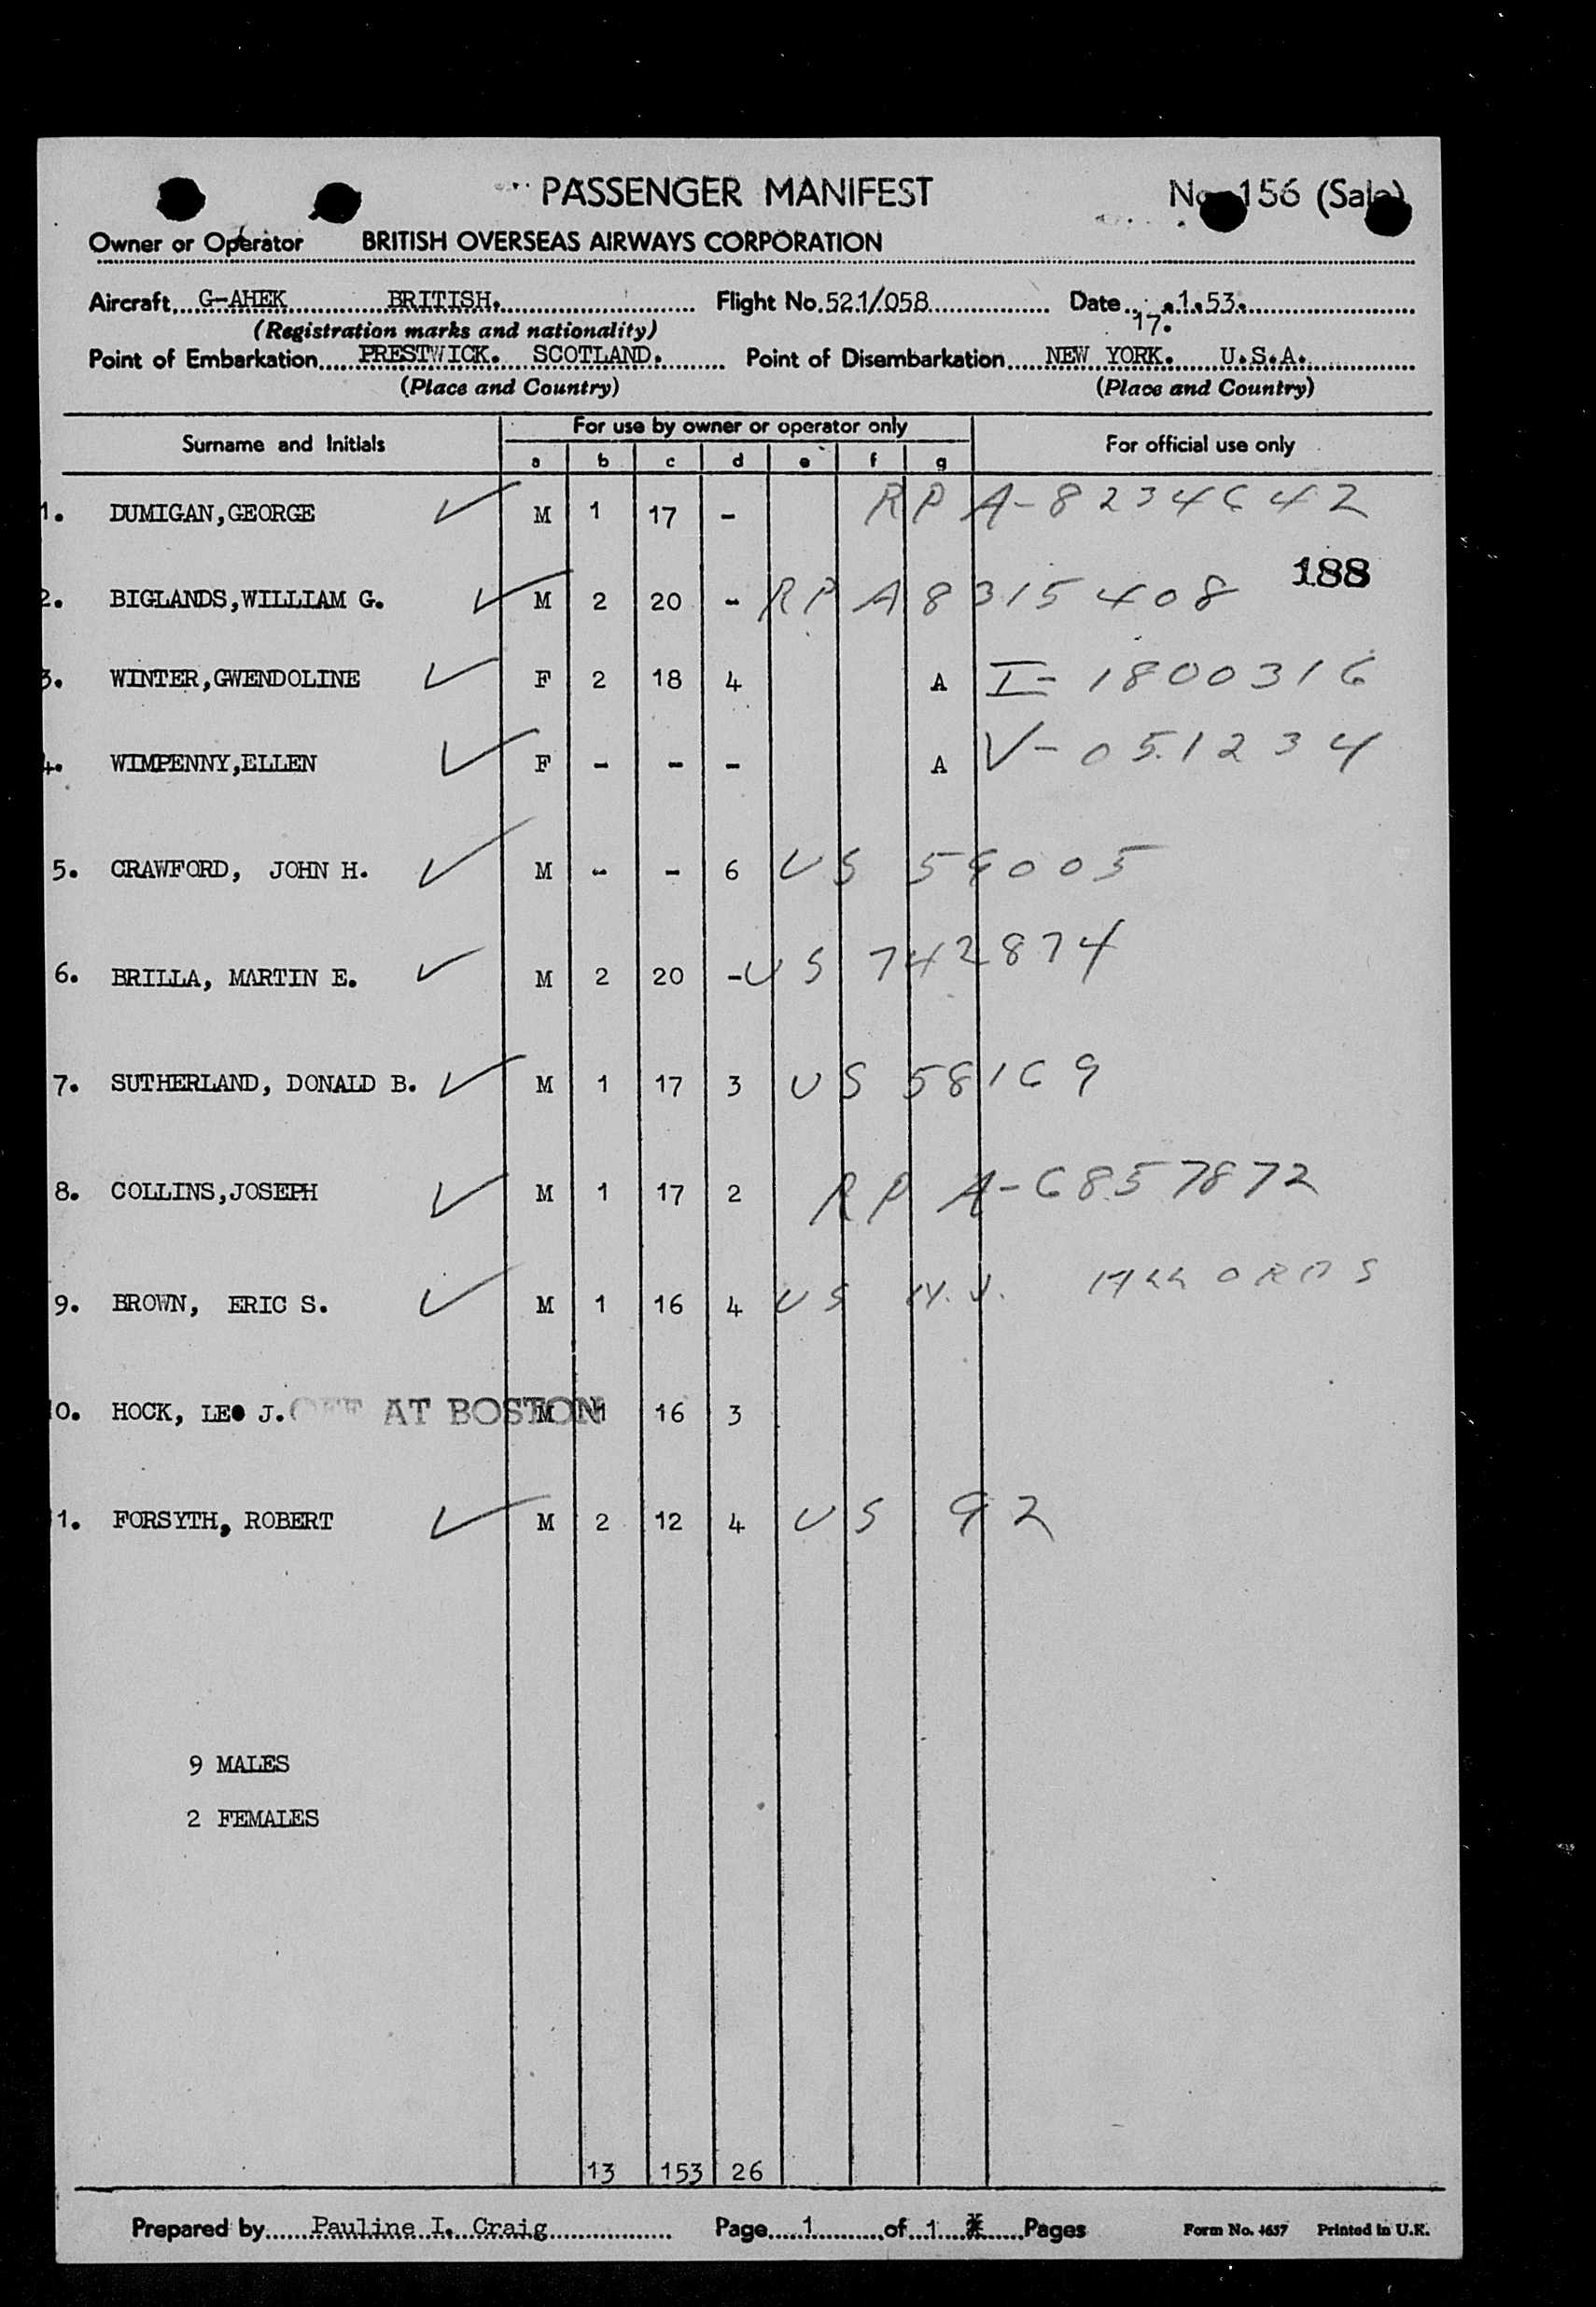 PASSENGER MANIFEST No. 156 (Sala)
Owner or Operator BRITISH OVERSEAS AIRWAYS CORPORATION
Aircraft G-AHEK BRITISH. Flight No. 521/058 Date 17. 1. 53.
(Registration marks and nationality)
Point of Embarkation PRESTWICK. SCOTLAND. Point of Disembarkation NEW YORK. U.S.A.
(Place and Country) (Place and Country)
Surname and Initials For use by owner or operator only For official use only
a b c d e f g
1. DUMIGAN,GEORGE M 1 17 - RP A-8234642
188
2. BIGLANDS,WILLIAM G. M 2 20 - RP A8315408
3. WINTER,GWENDOLINE F 2 18 4 A I-1800316
4. WIMPENNY,ELLEN F - - - A V-051234
5. CRAWFORD, JOHN H. M - - 6 US 59005
6. BRILLA, MARTIN E. M 2 20 - US 742874
7. SUTHERLAND, DONALD B. M 1 17 3 US 58169
8. COLLINS,JOSEPH M 1 17 2 RP A-6857872
9. BROWN, ERIC S. M 1 16 4 US
0. HOCK, LEO J. OFF AT BOSTON M 1 16 3
1. FORSYTH, ROBERT M 2 12 4 US 92
9 MALES
2 FEMALES
13 153 26
Prepared by Pauline I. Craig Page 1 of 1 Pages Form No. 4657 Printed in U.K.